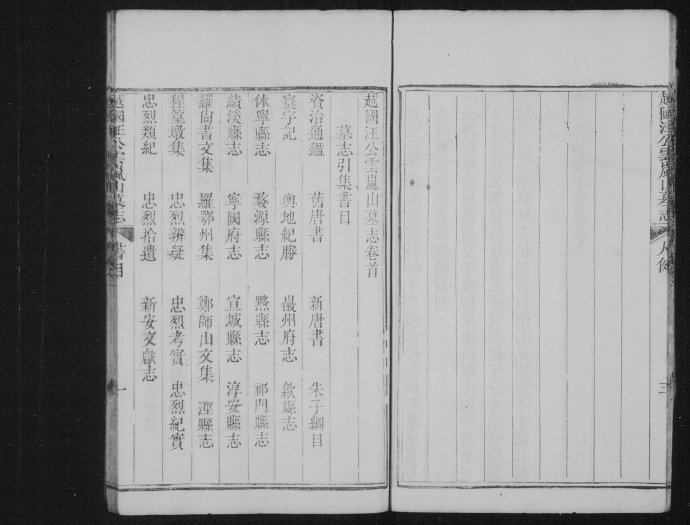 越國汪公雲嵐山墓志
凡例
三
越國汪公雲嵐山墓志卷首
墓志引集書目
資治通鑑 舊唐書 新唐書 朱子綱目
寰宇記 輿地紀勝 徽州府志 歙縣志
休寧縣志 婺源縣志 黟縣志 祁門縣志
績溪縣志 寧國府志 宣城縣志 淳安縣志
羅尚書文集 羅鄂州集 鄭師山文集 涇縣志
篁墩集 忠烈辨疑 忠烈考實 忠烈紀實
忠烈類紀 忠烈拾遺 新安文獻志
越國汪公雲嵐山墓志
書目
一